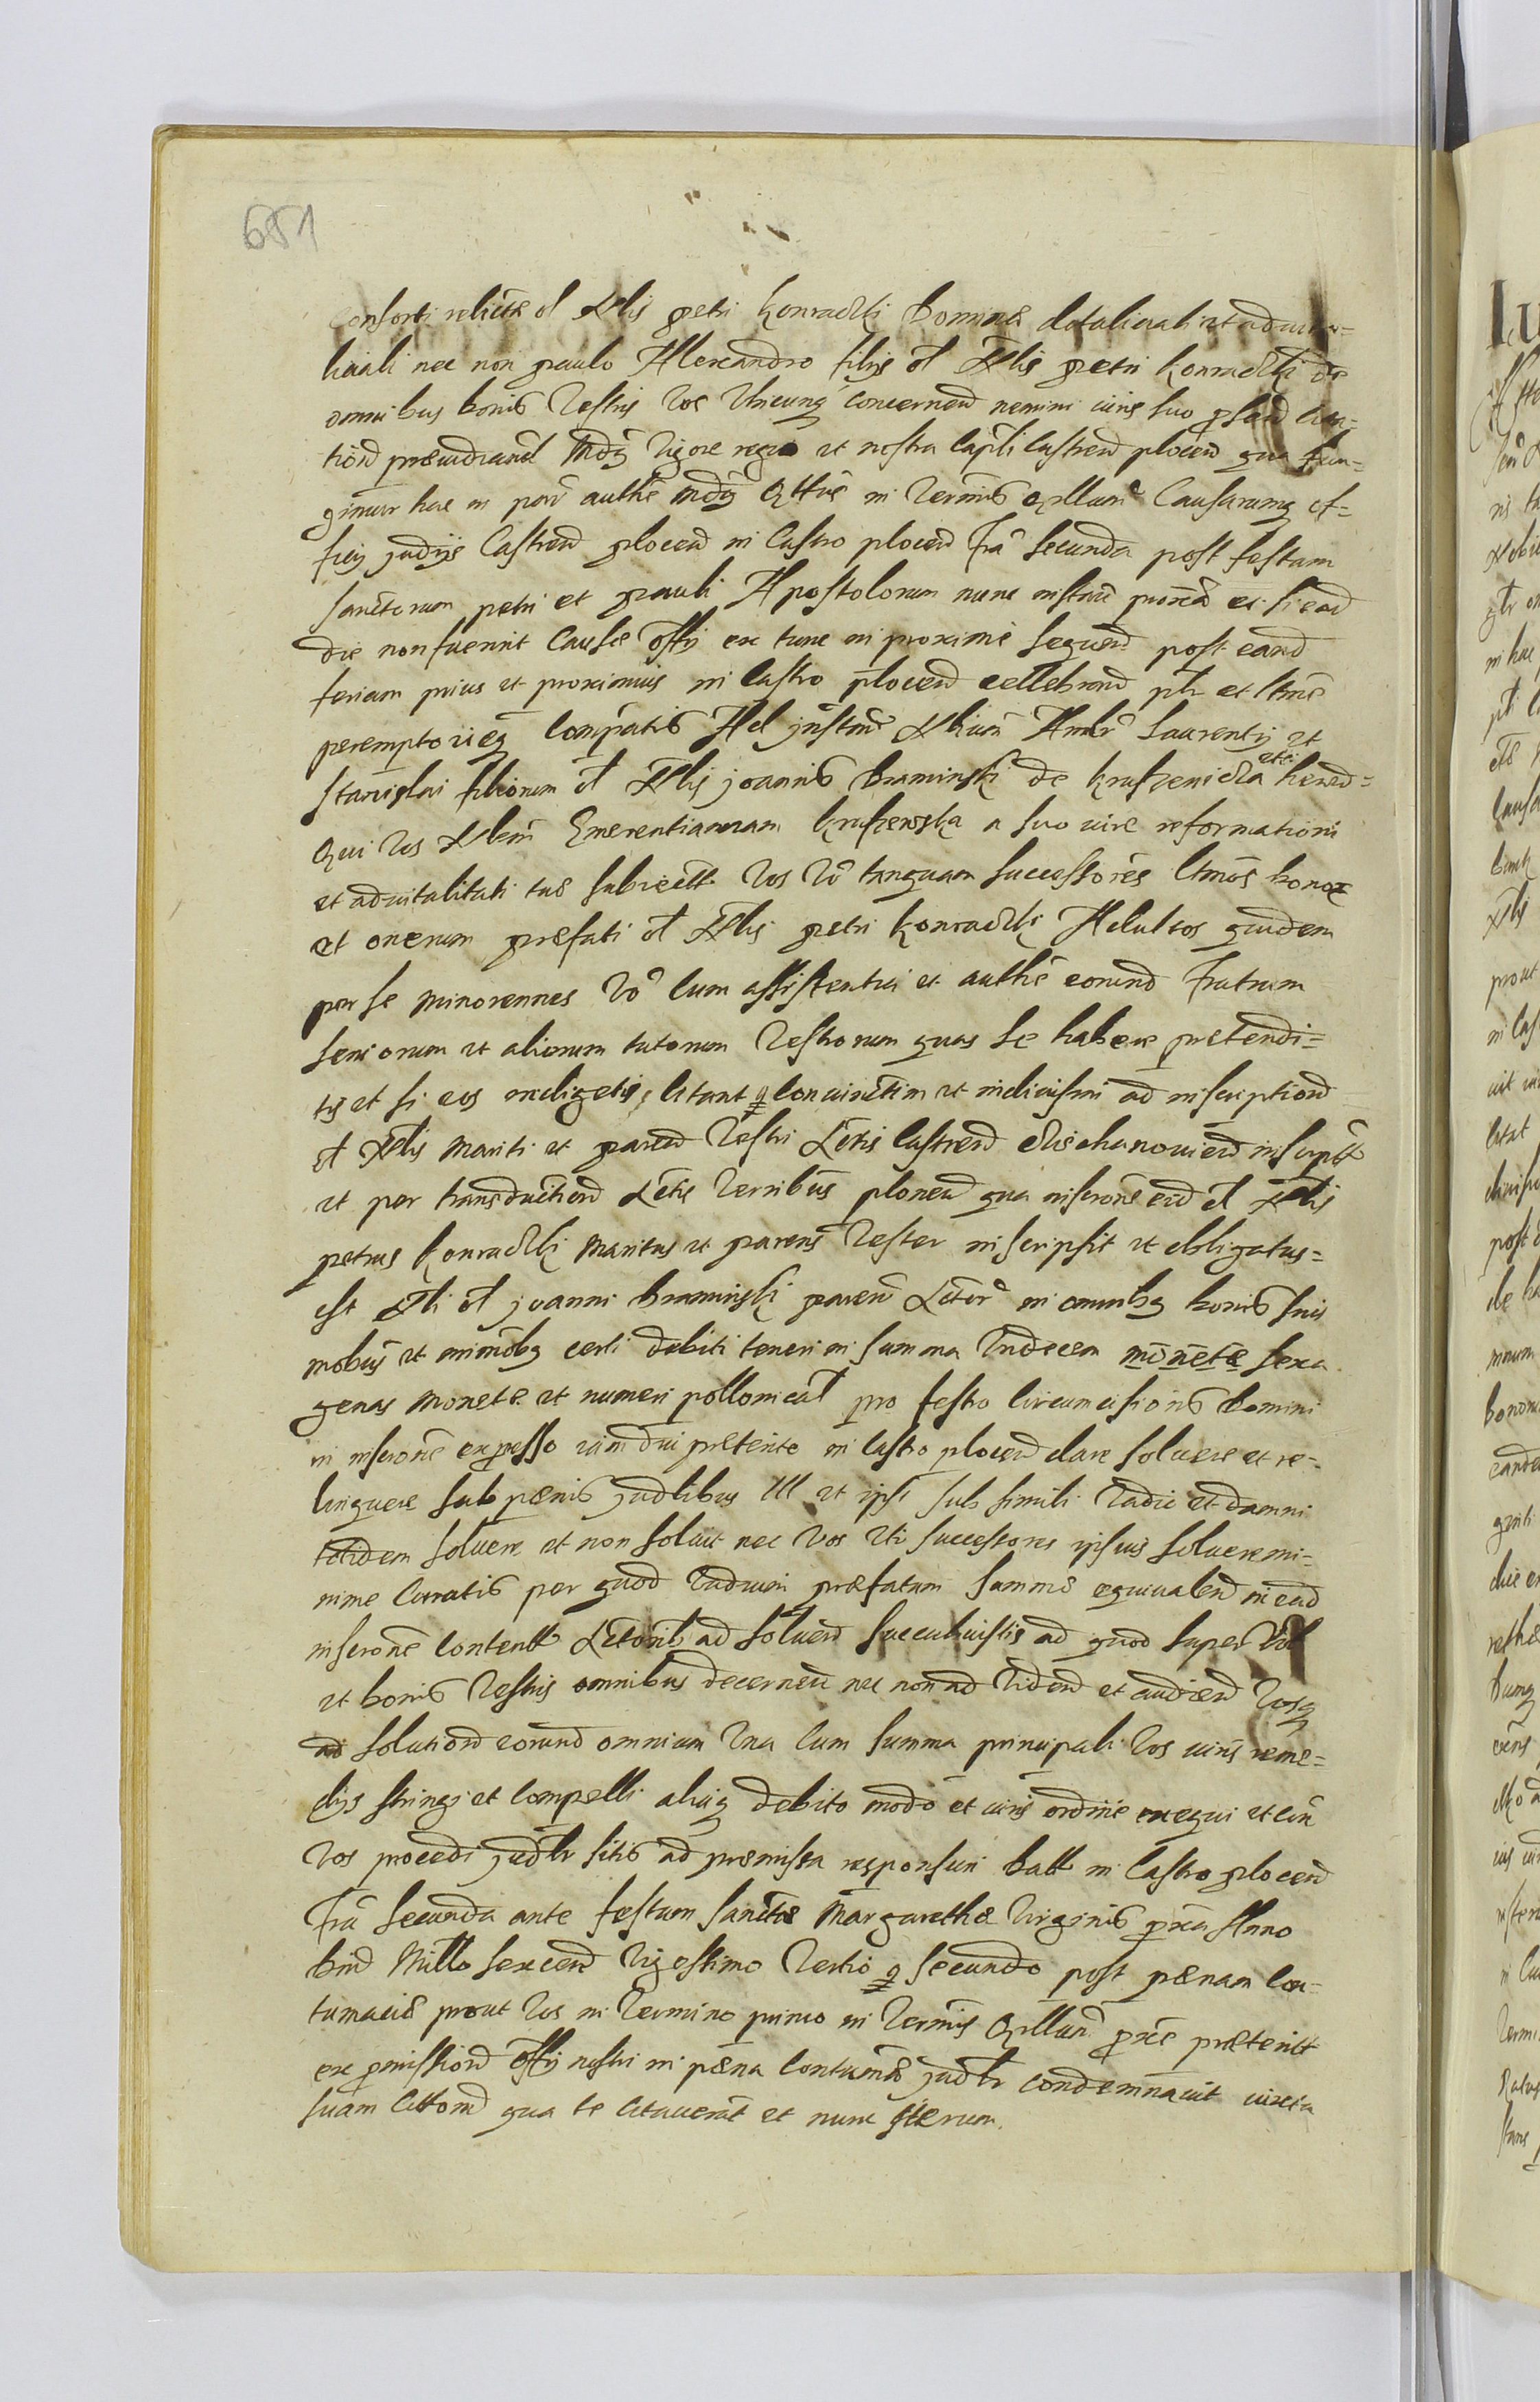 651
Consorti relictæ ol Nlis petri Konradzki Dominæ dotalitiali et aduita-
litiali nec non paulo Alexandro filijs ol Nlis petri Konradzki de
omnibus bonis Vestris Vos Vbicunq concernen nemini iure suo
tiond præiudicand Mdg Vigore regio et nostra Capli Castren plocen qua fun-
gimur hac in parte authe mdg Qttus in Terminis qllarum Causarumq of-
ficij judij Castren plocen in Castro plocen fra secunda post festum
Sanctorum petri et pauli Apostolorum nunc instan proxa et si ead
die non fuerint Causæ offij ex tunc in proxime sequen post eand
feriam prius et proximius in Castro plocen cellebrand plr et ltme
peremptorieq Compatis Ad jnstan Nlium Andr Laurentij et
Stanislai filiorum ol Nlis joannis braminski de kruszenicza hered-
Qui Vos Nlem Emerentianam kruszewska a suo iure reformationi
et aduitalitati tuæ subiectt Vos Vo tanquam successores ltmos bonor
et onerum præfati ol Nlis petri Konradzki Adultos quidem
per se minorennes Vo cum assistentia et authe eorund fratrum
seniorum et aliorum tutorum Vestrorum quas se habere prætendi-
tis et si eos indigetis, citant q coniunctim et indiuisim ad inscriptiond
ol Nlis mariti et paren Vestri Actis Castren Ciechanouien inscript
et per transductiond Actis Terribus plonen qua inscrone eid ol Nlis
petrus Konradzki maritus et parens Vester inscripsit et obligatus-
est Nli ol joanni braminski paren Actor in omnibq bonis suis
mobus et immobq certi debiti teneri in summa Vndecem monetæ sexa
genas monetæ et numeri pollonicat pro festo Circumcisionis Domini
in inscrone expresso iam diu præterito in Castro plocen dare soluere et re-
linquere sub pænis judlibus III et ipse sub simili Vadio et damni
totidem soluere et non soluit nec Vos Vti successores ipsius soluere mi-
nime Curatis per quod Vadium præfatum summæ equiualen in ead
inscrone content Actoribs ad soluend succubuistis ad quod super Vos
et bonis Vestris omnibus decernen nec non ad Videnд et audiend Vosq
ad solutiond eorund omnium Vna cum summa principali Vos iuris reme-
dijs stringi et compelli aliaq debito modo et iuris ordine exequi et con
Vos procedi judlr sitis ad præmissa responsuri Datt in Castro plocen
fra secunda ante festum sanctæ Margarethæ Virginis proxa Anno
Dni Millo sexcen Vigestimo Tertio q secundo post pænam con-
tumaciæ prout Vos in Termino primo in Terminis Qllar proxe præteritt
ex pmissiond offij nostri in pæna contumaæ judlr condemnauit iuxta
suam Cittond qua te Citauerat et nunc iterum.